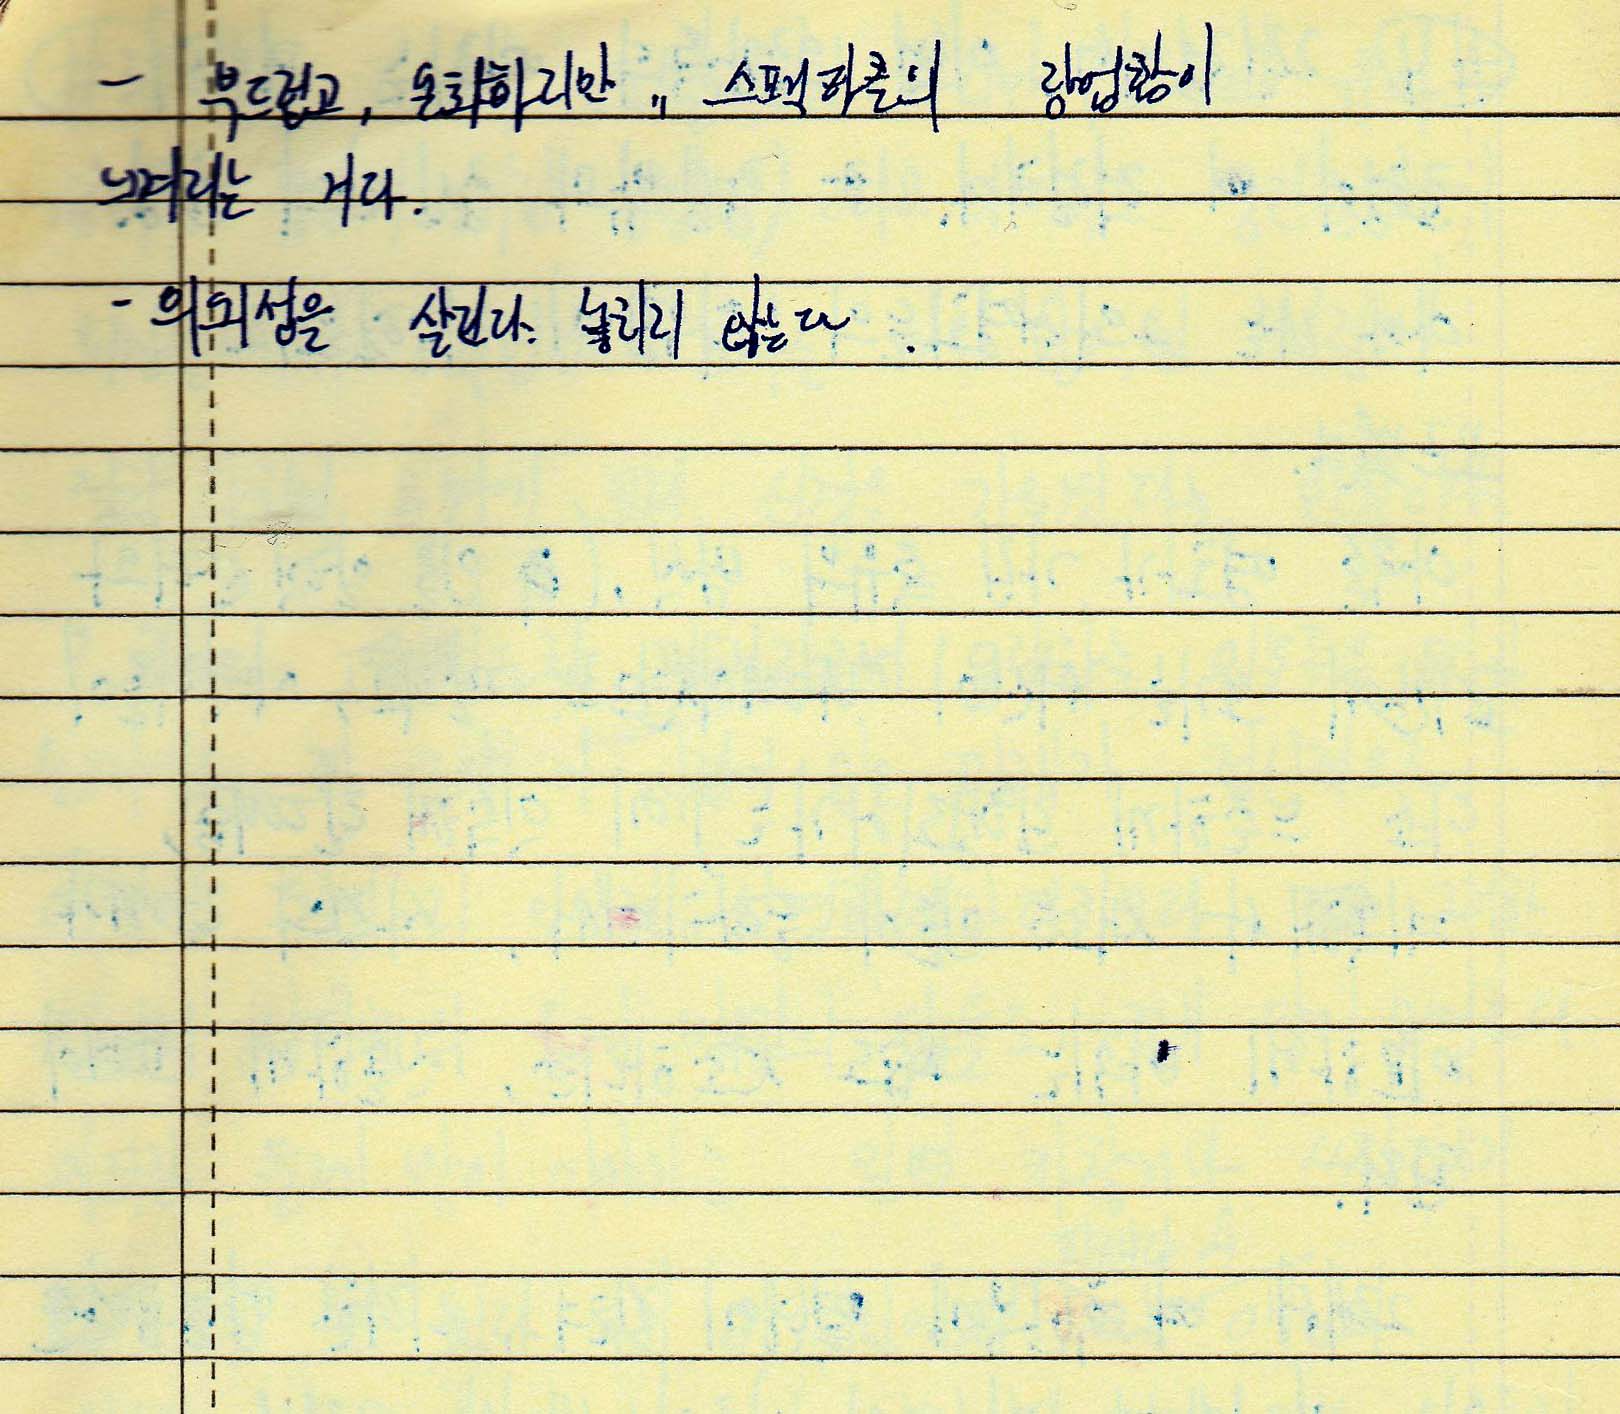 - 부드럽고, 온화하지만 „ 스펙타클의 장엄함이
느껴지는 거다.
- 의외성을 살린다. 놓치지 않는다.